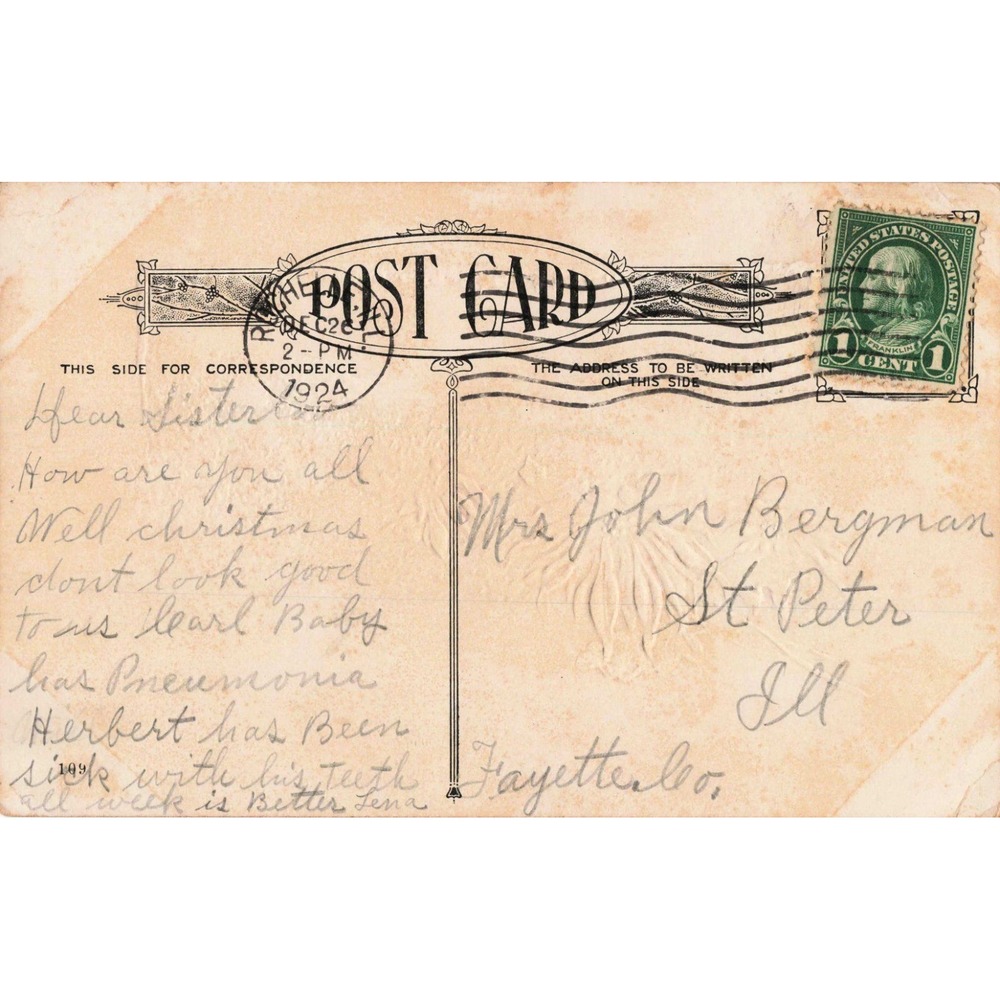 POST CARD
DEC 26
2 - PM
1924
UNITED STATES POSTAGE
FRANKLIN
1 CENT 1
THIS SIDE FOR CORRESPONDENCE
THE ADDRESS TO BE WRITTEN
ON THIS SIDE
Dear Sister
How are you all
Well christmas
dont look good
to us Carl Baby
has Pneumonia
Herbert has Been
sick with his Teeth
all week is Better Lena
109
Mrs John Bergman
St Peter
Ill
Fayette Co.